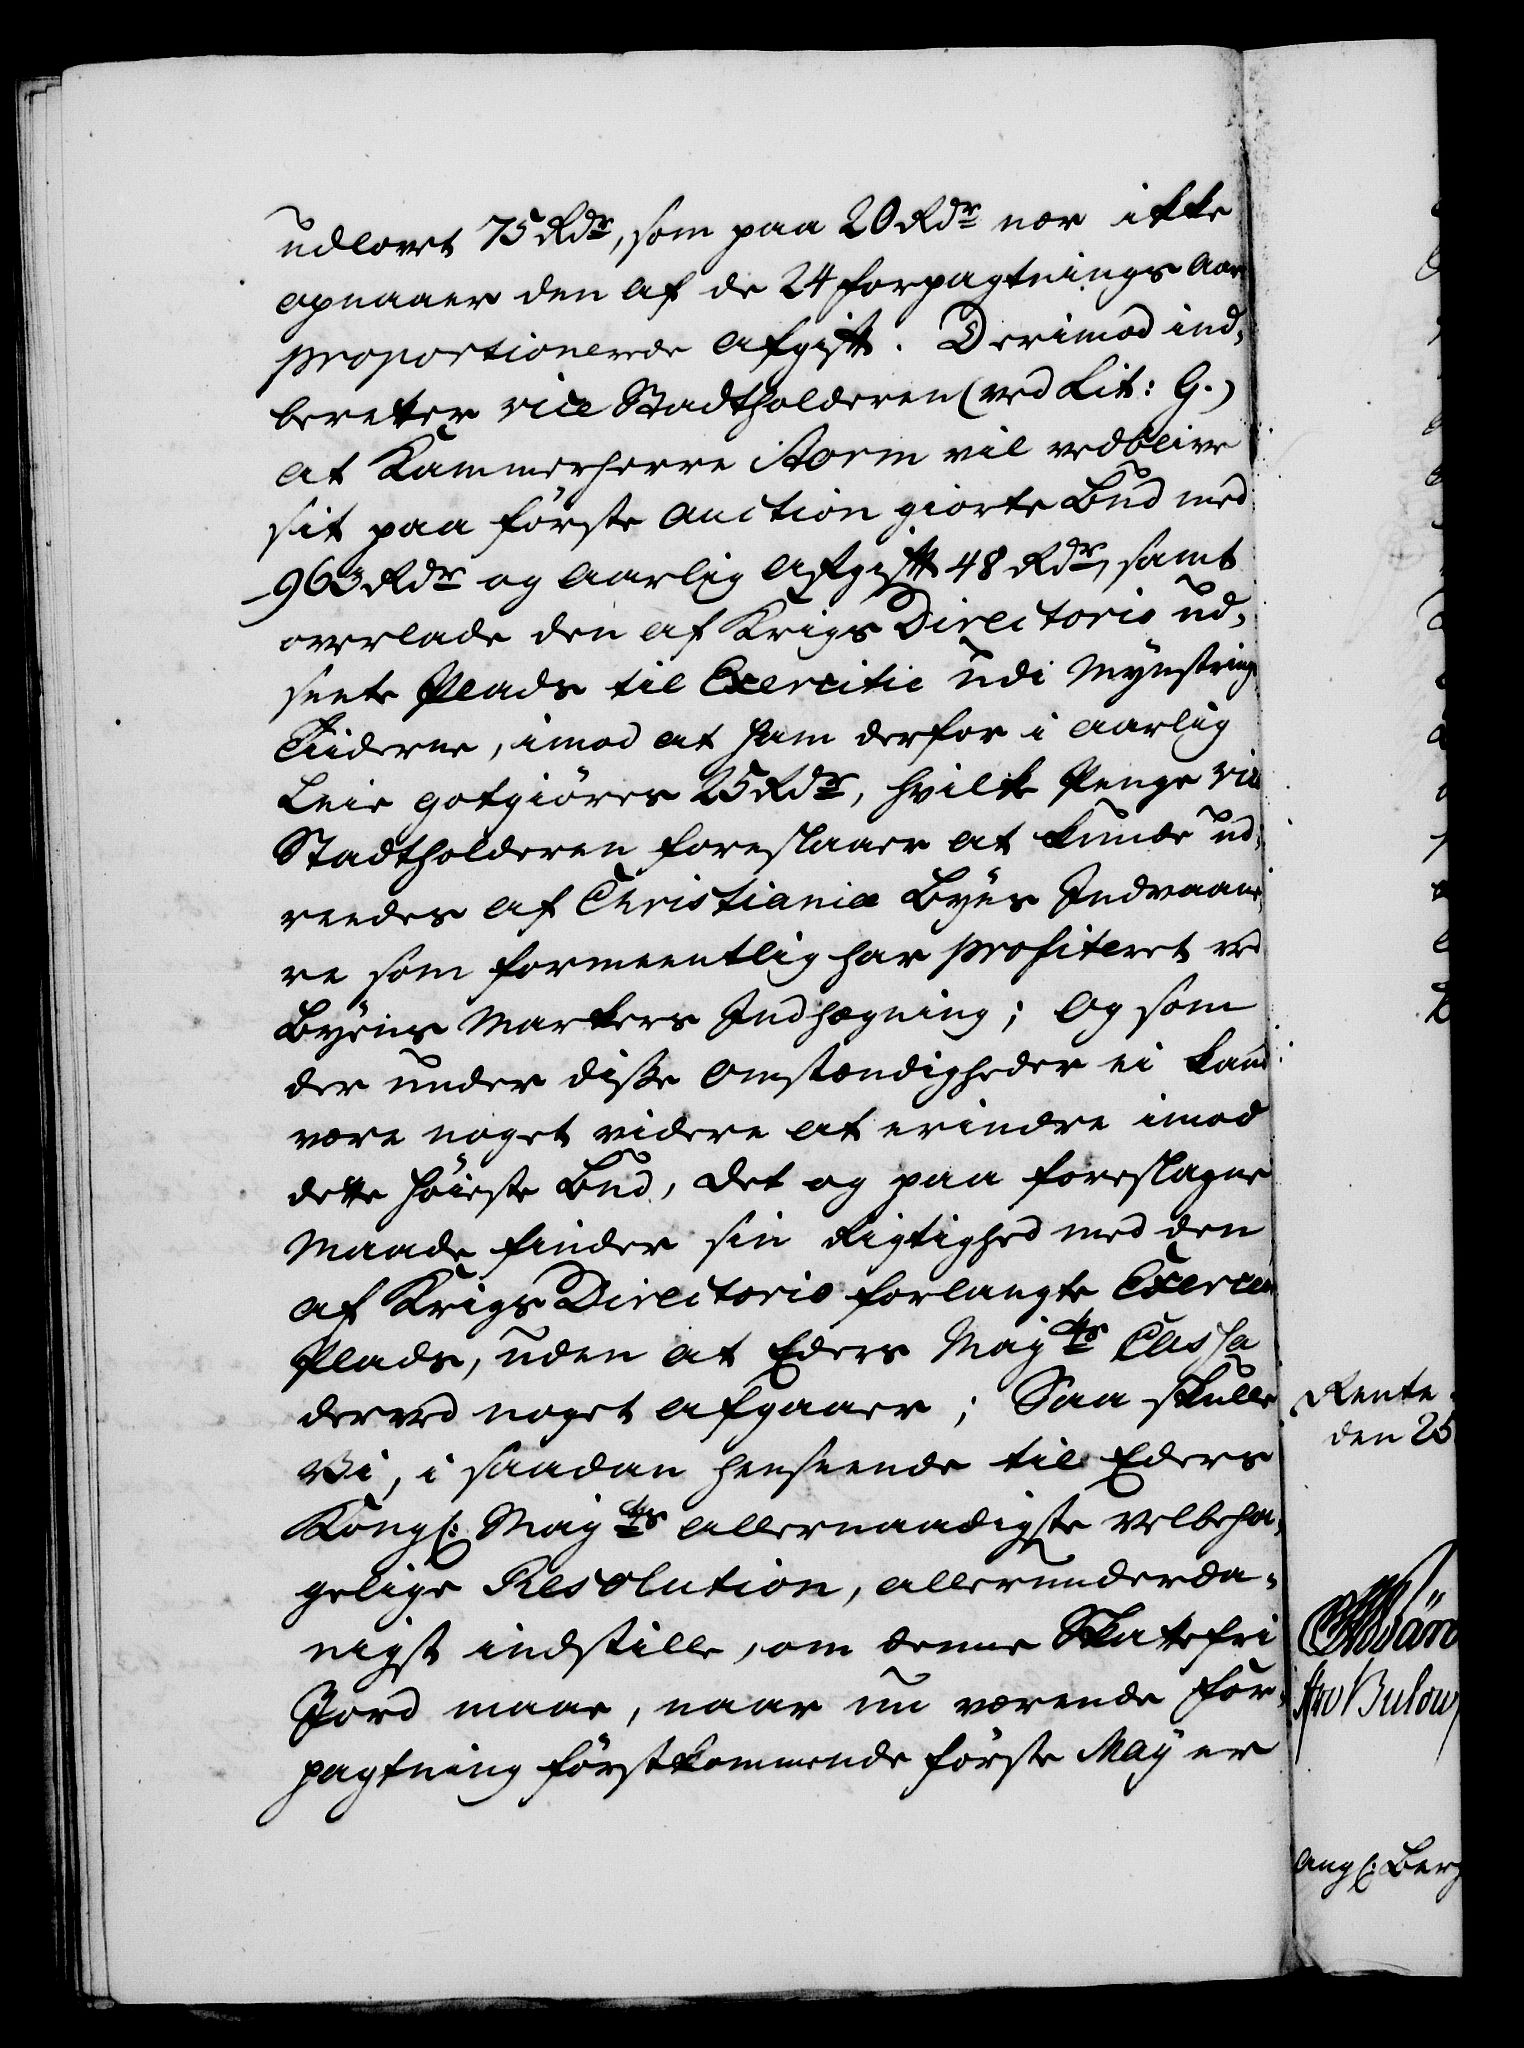 udlovet 75 Rdr, som paa 20 Rdr nær ikke
opnaaer den af de 24 forpagtnings Aar
proportionerede Afgift. Derimod ind-
beretter vice Stadtholderen (ved Lit: G.)
at Kammerherre Storm vil vedblive
sit paa første Auction giorte Bud med
963 Rdr og aarlig Afgift 48 Rdr, samt
overlade den af Krigs Directorio ud-
seete Plads til Exercitie udi Mynstrings
Tiiderne, imod at ham derfor i aarlig
Leie gotgiöres 25 Rdr, hvilke Penge vice
Stadtholderen foreslaaer at kunde ud-
reedes af Christianiæ Byes Indvaane-
re som formeentlig har profiteret ved
Byens Markers Indhægning; Og som
der under disse Omstændigheder ei kand
være noget videre at erindre imod
dette höieste Bud, det og paa foreslagne
Maade finder sin Rigtighed med den
af Krigs Directorio forlangte Exercer
Plads, uden at Eders Mayts Cassa
derved noget afgaaer; Saa skulle
Vi, i saadan henseende til Eders
Kongl: Mayts allernaadigste velbeha-
gelige Resolution, allerunderda-
nigst indstille, om denne Skattefri
Jord maae, naar nu værende For-
pagtning förstkommende förste May er
Rente
den 25
Bulow
angl: Berg